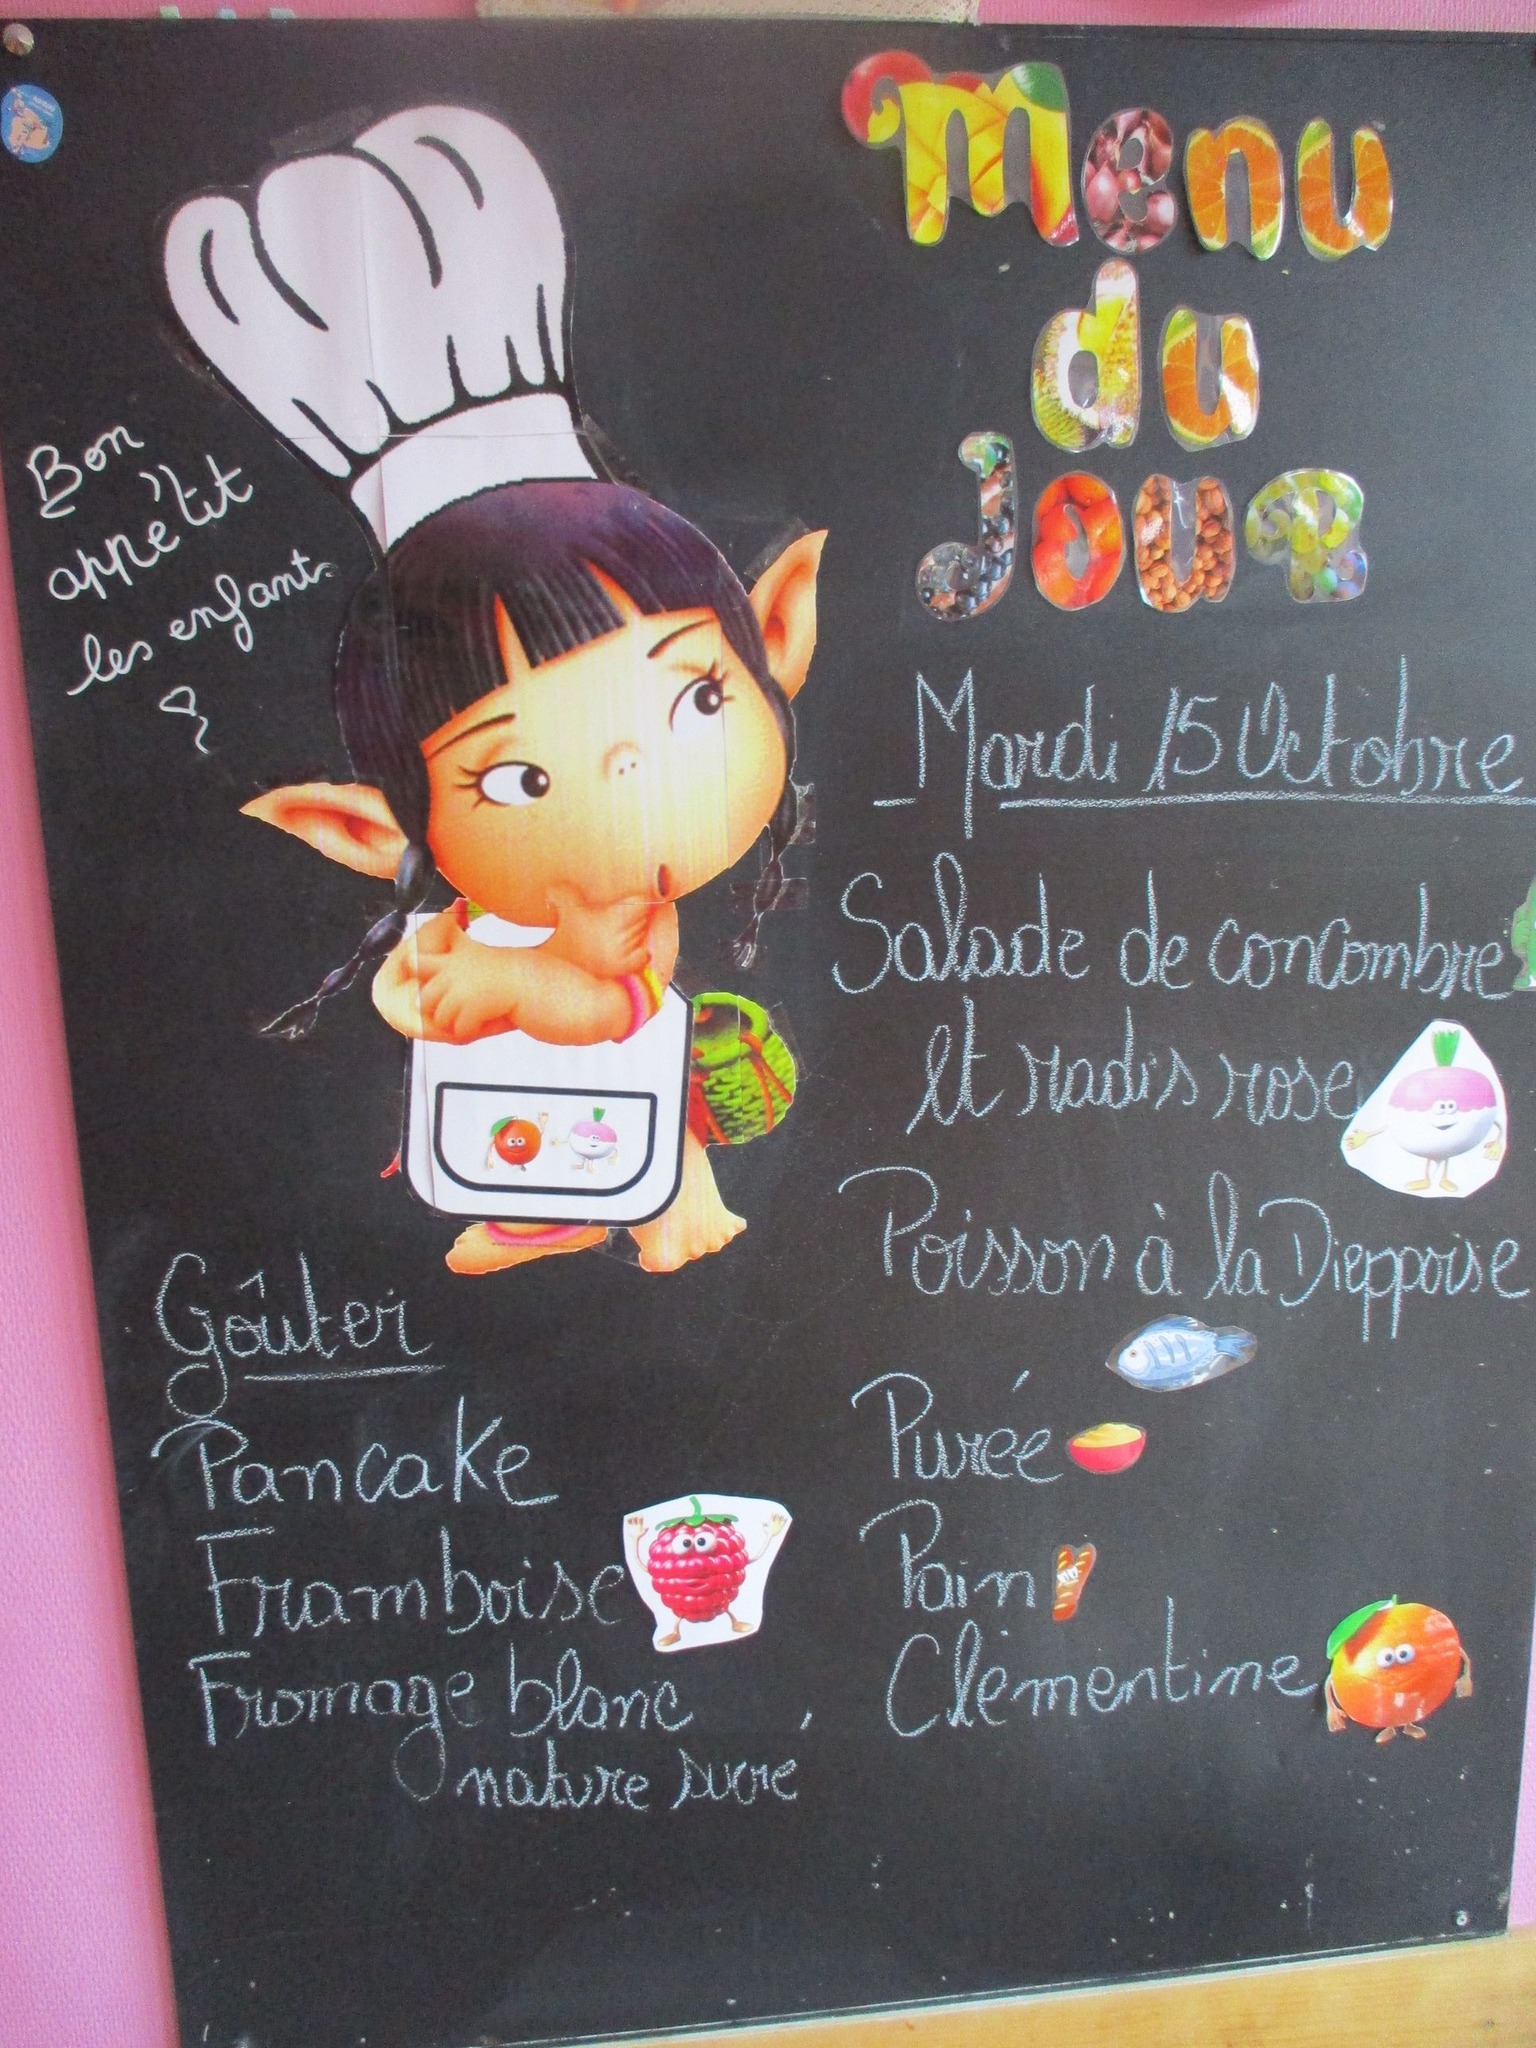 Menu
du
Jour
Bon
appétit
les enfants
Mardi 15 Octobre
Salade de concombre
et radis rose
Poisson à la Dieppoise
Purée
Pain
Clémentine
Goûter
Pancake
Framboise
Fromage blanc
nature sucre